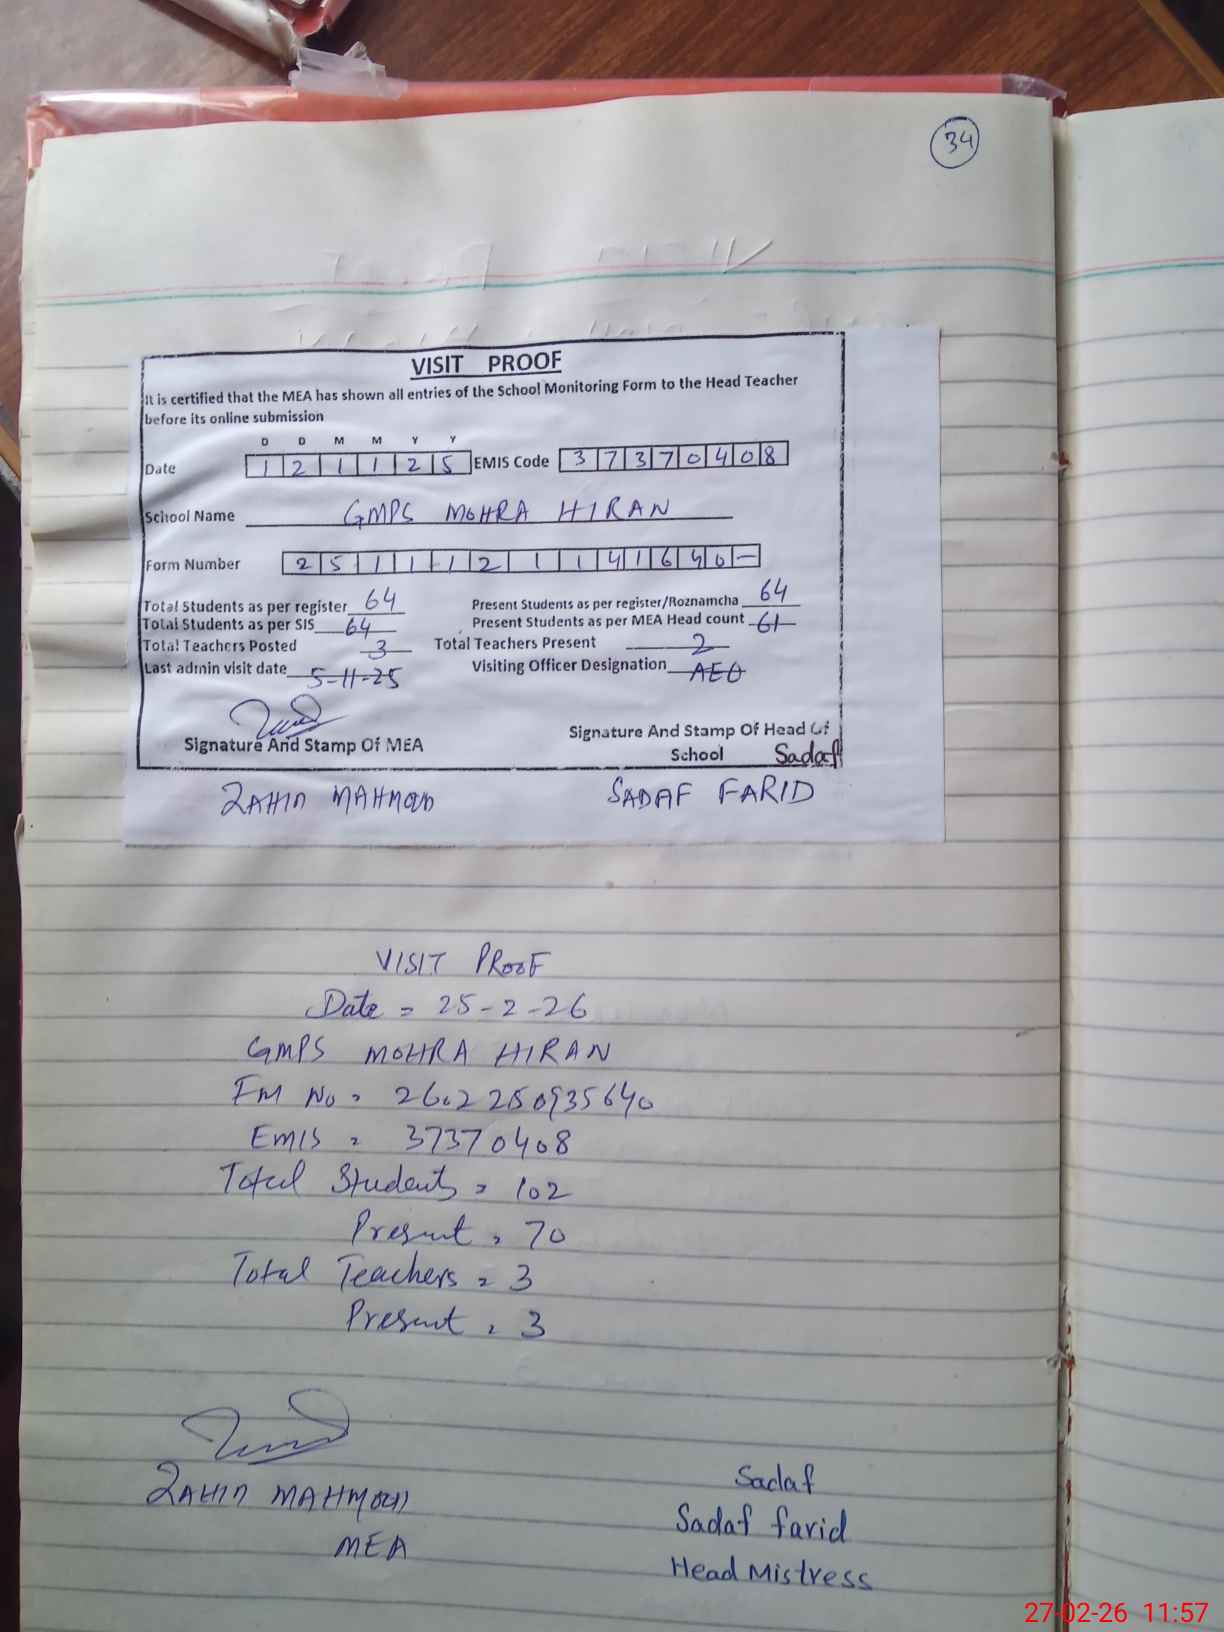 34
VISIT PROOF
It is certified that the MEA has shown all entries of the School Monitoring Form to the Head Teacher
before its online submission
D D M M Y Y
Date 1 2 1 1 2 5 EMIS Code 3 7 3 7 0 4 0 8
School Name GMPS MOHRA HIRAN
Form Number 2 5 1 1 1 2 1 1 4 1 6 4 0 -
Total Students as per register 64 Present Students as per register/Roznamcha 64
Total Students as per SIS 64 Present Students as per MEA Head count 61
Total Teachers Posted 3 Total Teachers Present 2
Last admin visit date 5-11-25 Visiting Officer Designation AEO
Signature And Stamp Of MEA Signature And Stamp Of Head Of
School Sadaf
MAHMOOD SADAF FARID
VISIT PROOF
Date = 25-2-26
GMPS MOHRA HIRAN
FM No = 2602250935640
EMIS = 37370408
Total Students = 102
Present = 70
Total Teachers = 3
Present = 3
MAHMOOD
MEA
Sadaf
Sadaf farid
Head Mistress
27-02-26 11:57